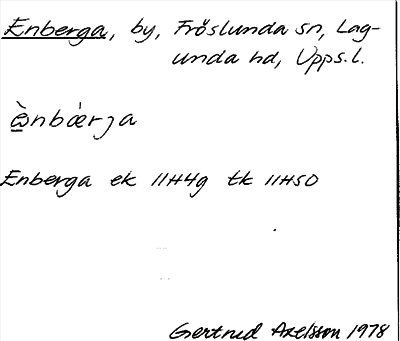 Enberga, by, Fröslunda sn, Lag-
unda hd, Upps.l.
Enberga ek 11H4g tk 11H50
Gertrud Axelsson 1978